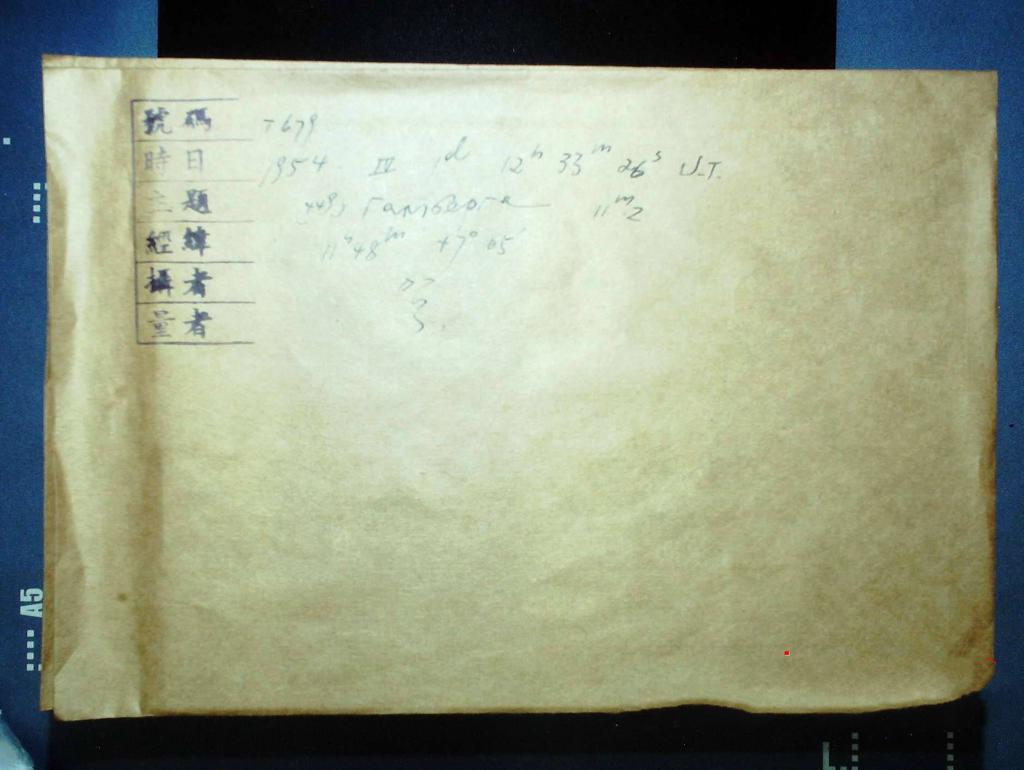 號碼 T679
時日 1954 IV 1d 12h 33m 26s U.T.
主題 449, Гамовота 11m2
經緯 11h 48m +7° 05'
攝者
量者
A5